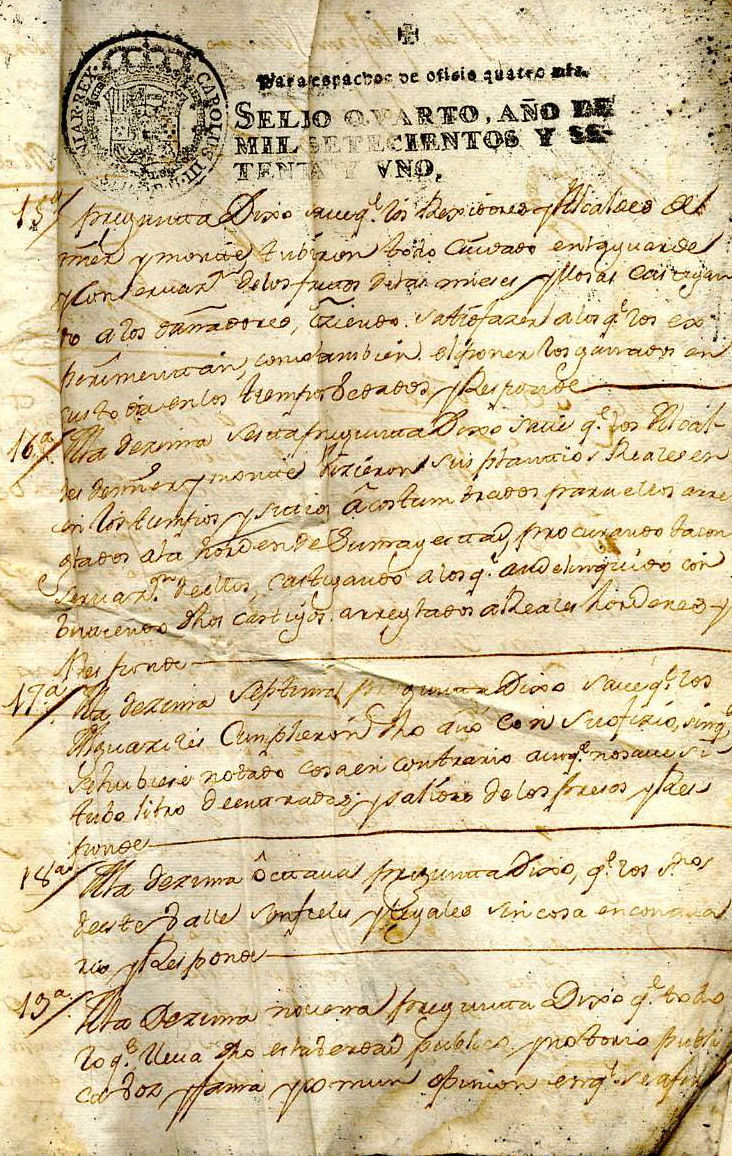 CAROLUS III HISPANIAR REX
Para despachos de oficio quatro mrs.
SELLO QVARTO, AÑO DE
MIL SETECIENTOS Y SE-
TENTA Y VNO.
15ª pregunta Dixo save q.e los Rexidores y Alcaldes del
mer y monte tubieron todo Cuidado en la guarda
y Conservaz.n de los frutos de las mieses y llosas castigan
do a los dañadores, haziendo satisfazer a los q.e los ex
perimentan, como tambien el poner los ganados en
custodia en los tiempos bedados y Responde
16ª A la dezima sesta pregunta Dixo save q.e los Alcal
des de mer y monte hizieron sus plantios Reales en
en los tiempos y sitios acostumbrados para ellos arre
glados a la horden de Su magestad, procurando la con
servaz.n de ellos, castigando a los q.e an delinquido con
dhos castigos arreglados a Reales hordenes y
Responde
17ª A la dezima septima pregunta Dixo save q.e los
Alguaciles Cumplieron dho año con su ofizio, sin q.e
se hubiese notado cosa en contrario aunq.e no save si
tubo libro de entradas y salidas de los presos y Res
ponde
18ª A la dezima Octava pregunta Dixo, q.e los
de este Valle son fieles y legales sin cosa en contra
rio y Responde
19ª A la Dezima novena pregunta Dixo q.e todo
lo q.e lleva dho es la berdad publico y notorio publi
ca voz y fama y comun opinion en q.e se afir